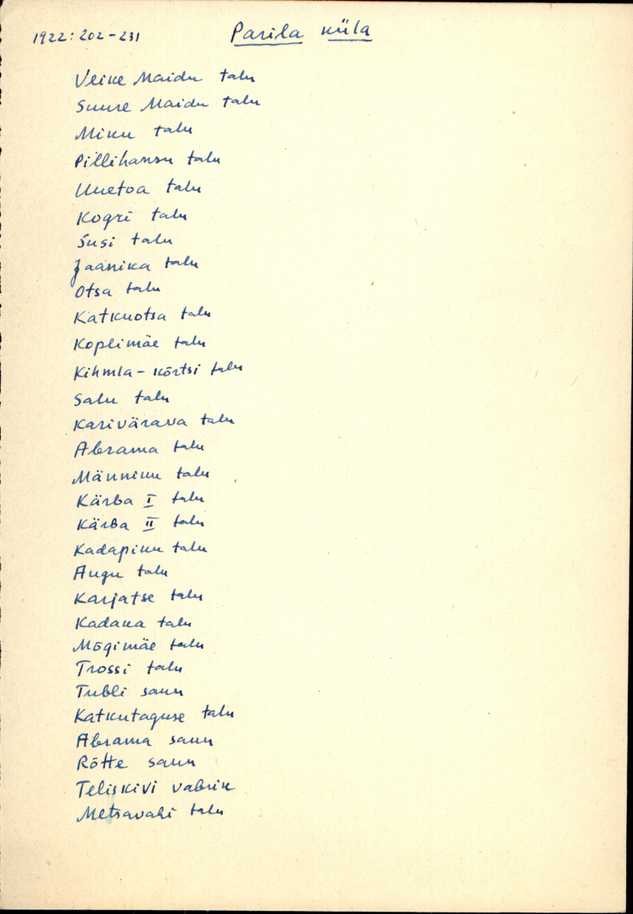 1922: 202-231 Parila küla
Veike Maidu talu
Suure Maidu talu
Miku talu
Pillihansu talu
Uuetoa talu
Kogri talu
Susi talu
Jaanika talu
Otsa talu
Katkuotsa talu
Koplimäe talu
Kihmla-kõrtsi talu
Salu talu
Karivärava talu
Abrama talu
Männiku talu
Kärba I talu
Kärba II talu
Kadapiku talu
Augu talu
Karjatse talu
Kadaka talu
Mõgimäe talu
Trossi talu
Tubli saun
Katkutaguse talu
Abrama saun
Rõtte saun
Teliskivi vabrik
Metsavahi talu